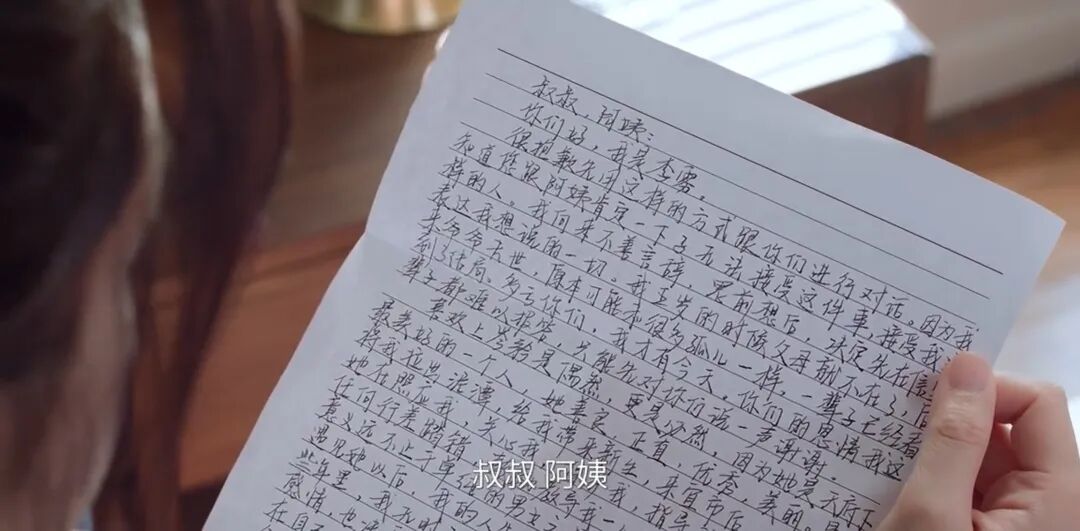 叔叔、阿姨:
你们好,我是李雾。
很抱歉先用这样的方式跟你们进行对话。因为我
知道您跟阿姨肯定一下子无法接受这件事,接受我
样的人。我向来不善言辞,思前想后,决定先在信
表达我想说的一切。我五岁的时候父母都不在了,后
来爷爷去世,原本可能和很多孤儿一样,一辈子已经看
到了结局。多亏你们,我才有今天。你们的恩情我这
辈子都难以报答,只能先对你们说一声谢谢。
喜欢上岑矜是偶然,更是必然,因为她是天底下
最美好的一个人,她善良,正直,优秀,美的。是
将我拉出泥潭,给我带来新生,来宜市后
她在照应我,关心我,教导我,指导
任何行差踏错
意义远不止于
遇见她以后,我的人生
些年里,我无时
感情,也
在自
叔叔 阿姨